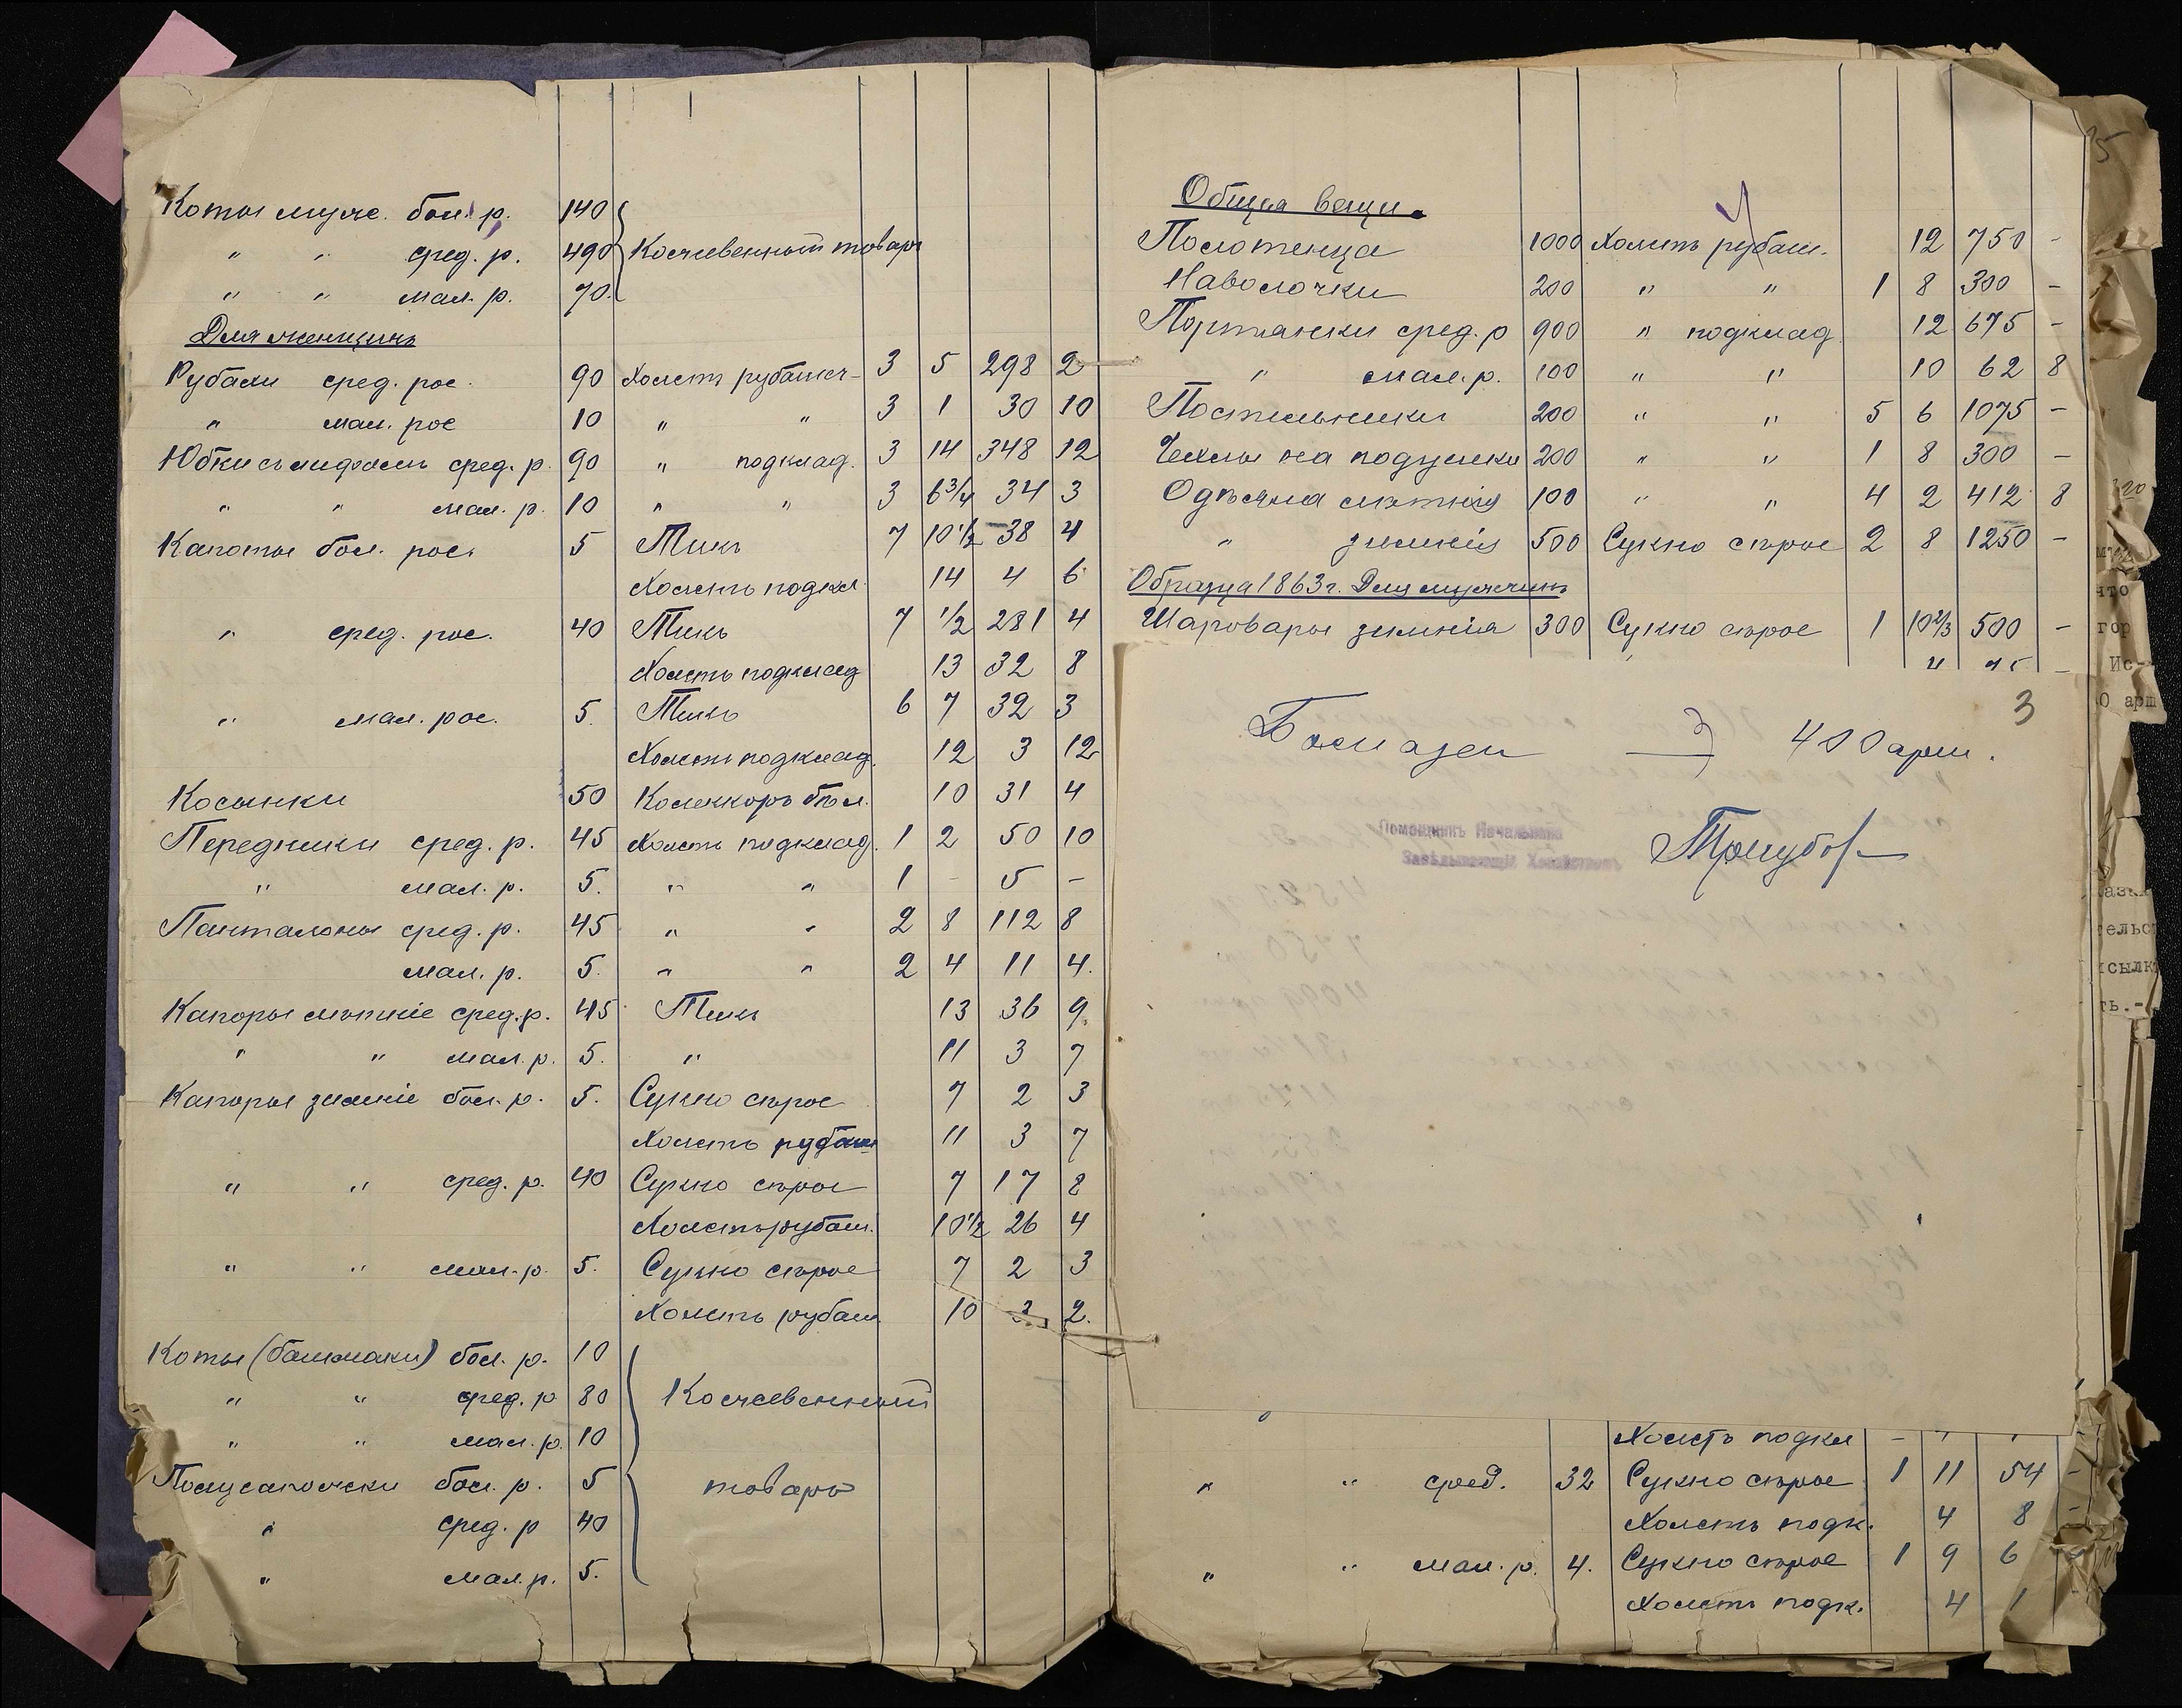 Коты мужс. бол. р. 140
" " сред. р. 490 Кожевенный товаръ
" " мал. р. 70.
Для женщинъ
Рубахи сред. рос. 90 Холстъ рубашеч- 3 5 298 2
" мал. рос 10 " " 3 1 30 10
Юбки съ лифомъ сред. р. 90 " подклад. 3 14 348 12
" " мал. р. 10 " " 3 6 3/4 34 3
Капоты бол. рос. 5 Тикъ 7 10 1/2 38 4
Холстъ подкл. 14 4 6
" сред. рос. 40 Тикъ 7 1/2 281 4
Холстъ подклад 13 32 8
" мал. рос. 5. Тикъ 6 7 32 3
Холстъ подклад. 12 3 12
Косынки 50 Коленкоръ бѣл. 10 31 4
Передники сред. р. 45 Холстъ подклад. 1 2 50 10
" мал. р. 5. " " 1 - 5 -
Панталоны сред. р. 45 " " 2 8 112 8
мал. р. 5. " " 2 4 11 4.
Капоры лѣтніе сред. р. 45 Тикъ 13 36 9.
" " мал. р. 5. " 11 3 7
Капоры зимніе бол. р. 5. Сукно сѣрое 7 2 3
Холстъ рубаш 11 3 7
" " сред. р. 40 Сукно сѣрое 7 17 8
Холстъ рубаш. 10 1/2 26 4
" " мал. р. 5. Сукно сѣрое 7 2 3
Холстъ рубаш. 10 3 2.
Коты (башмаки) бол. р. 10
" " сред. р 80 Кожевенный
" " мал. р. 10
Полусапожки бол. р. 5 товаръ
" сред. р 40
" мал. р. 5.
Общія вещи.
Полотенца 1000 Холстъ рубаш. 12 750 -
Наволочки 200 " " 1 8 300 -
Портянки сред. р 900 " подклад. 12 675 -
" мал. р. 100 " " 10 62 8
Постильники 200 " " 5 6 1075 -
Чехлы на подушки 200 " " 1 8 300 -
Одѣяла лѣтнія 100 " " 4 2 412 8
" зимнія 500 Сукно сѣрое 2 8 1250 -
Образца 1863 г. Для мужчинъ
Шаровары зимнія 300 Сукно сѣрое 1 10 2/3 500 -
3
Бомазеи 400 арш.
Помощникъ Начальника
Завѣдывающій Хозяйствомъ
Холстъ подкл
" " сред. 32 Сукно сѣрое 1 11 54 -
Холстъ подк. 4 8 -
" " мал. р. 4. Сукно сѣрое 1 9 6
Холстъ подк. 4 1